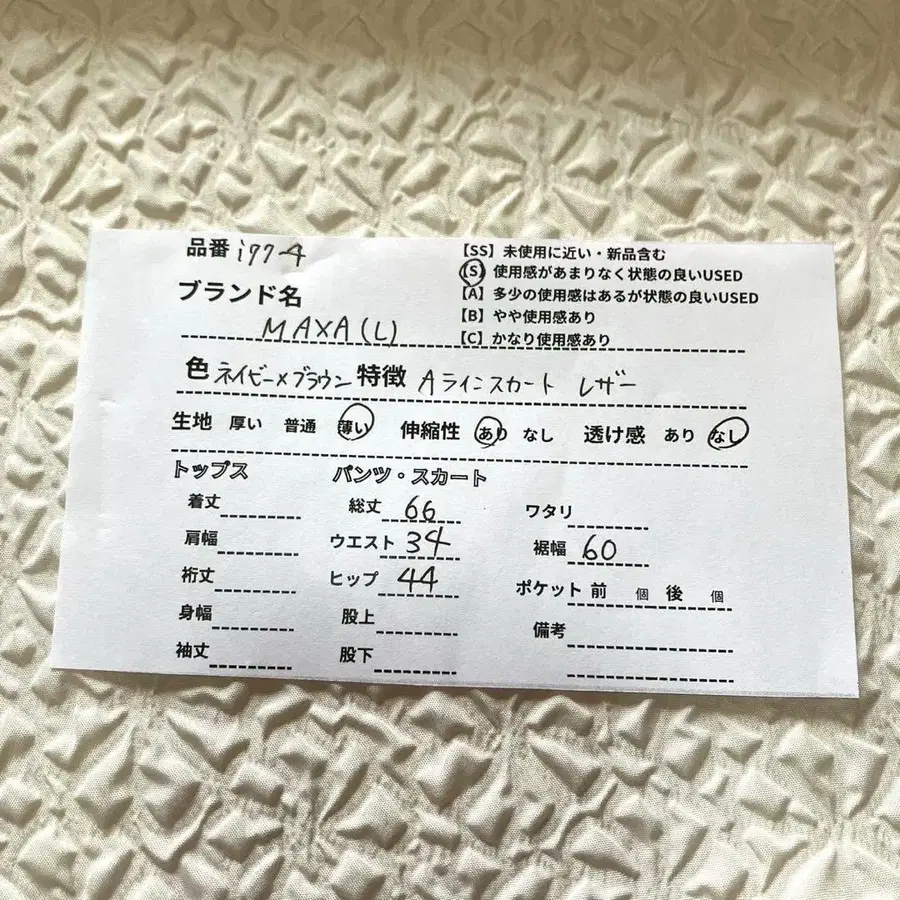 品番 i97-4
【SS】未使用に近い・新品含む
【S】使用感があまりなく状態の良いUSED
【A】多少の使用感はあるが状態の良いUSED
【B】やや使用感あり
【C】かなり使用感あり
ブランド名
MAXA(L)
色 ネイビー×ブラウン 特徴 Aラインスカート レザー
生地 厚い 普通 薄い 伸縮性 あり なし 透け感 あり なし
トップス パンツ・スカート
着丈 総丈 66 ワタリ
肩幅 ウエスト 34 裾幅 60
裄丈 ヒップ 44 ポケット 前 個 後 個
身幅 股上 備考
袖丈 股下